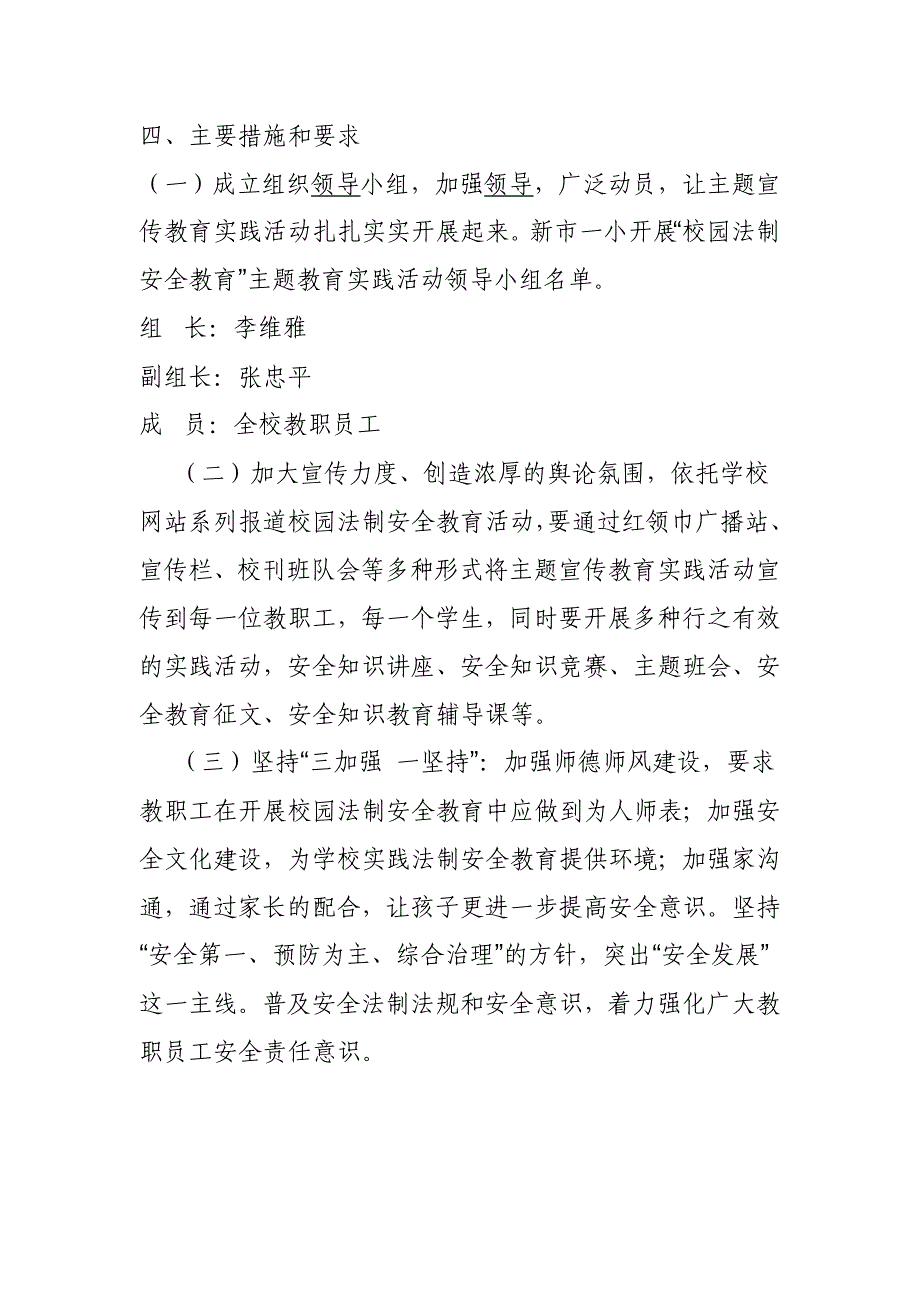 四、主要措施和要求
（一）成立组织领导小组，加强领导，广泛动员，让主题宣
传教育实践活动扎扎实实开展起来。新市一小开展“校园法制
安全教育”主题教育实践活动领导小组名单。
组　长：李维雅
副组长：张忠平
成　员：全校教职员工
（二）加大宣传力度、创造浓厚的舆论氛围，依托学校
网站系列报道校园法制安全教育活动，要通过红领巾广播站、
宣传栏、校刊班队会等多种形式将主题宣传教育实践活动宣
传到每一位教职工，每一个学生，同时要开展多种行之有效
的实践活动，安全知识讲座、安全知识竞赛、主题班会、安
全教育征文、安全知识教育辅导课等。
（三）坚持“三加强 一坚持”：加强师德师风建设，要求
教职工在开展校园法制安全教育中应做到为人师表；加强安
全文化建设，为学校实践法制安全教育提供环境；加强家沟
通，通过家长的配合，让孩子更进一步提高安全意识。坚持
“安全第一、预防为主、综合治理”的方针，突出“安全发展”
这一主线。普及安全法制法规和安全意识，着力强化广大教
职员工安全责任意识。